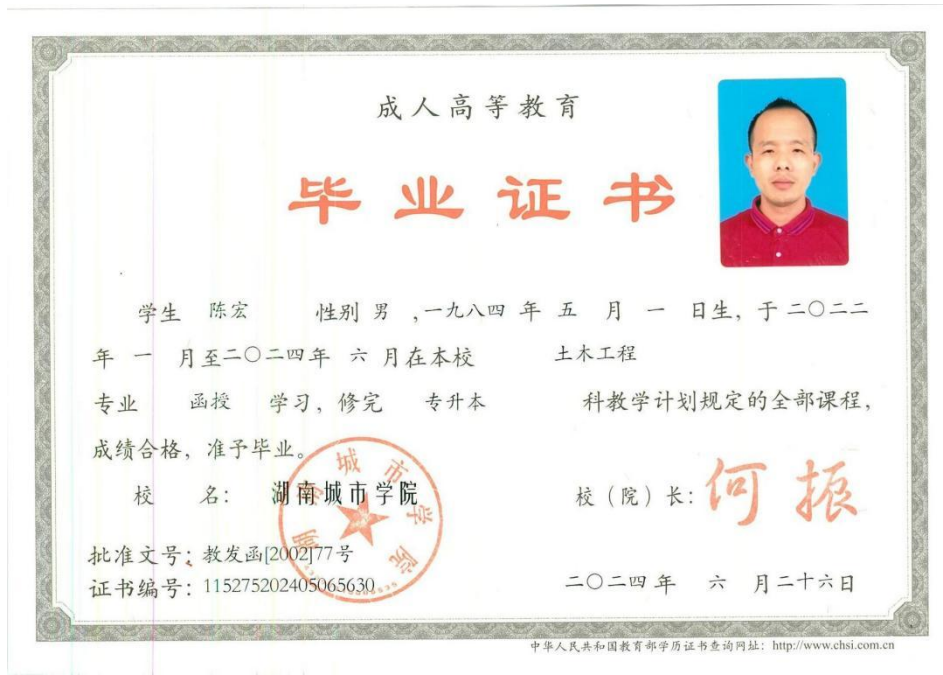 成人高等教育
毕业证书
学生 陈宏 性别 男 ,一九八四 年 五 月 一 日生，于二〇二二
年 一 月至二〇二四年 六 月在本校 土木工程
专业 函授 学习，修完 专升本 科教学计划规定的全部课程，
成绩合格，准予毕业。
校 名： 湖南城市学院
湖南城市学院
校（院）长：何振
批准文号：教发函[2002]77号
证书编号：115275202405065630
二〇二四年 六 月二十六日
中华人民共和国教育部学历证书查询网址：http://www.chsi.com.cn